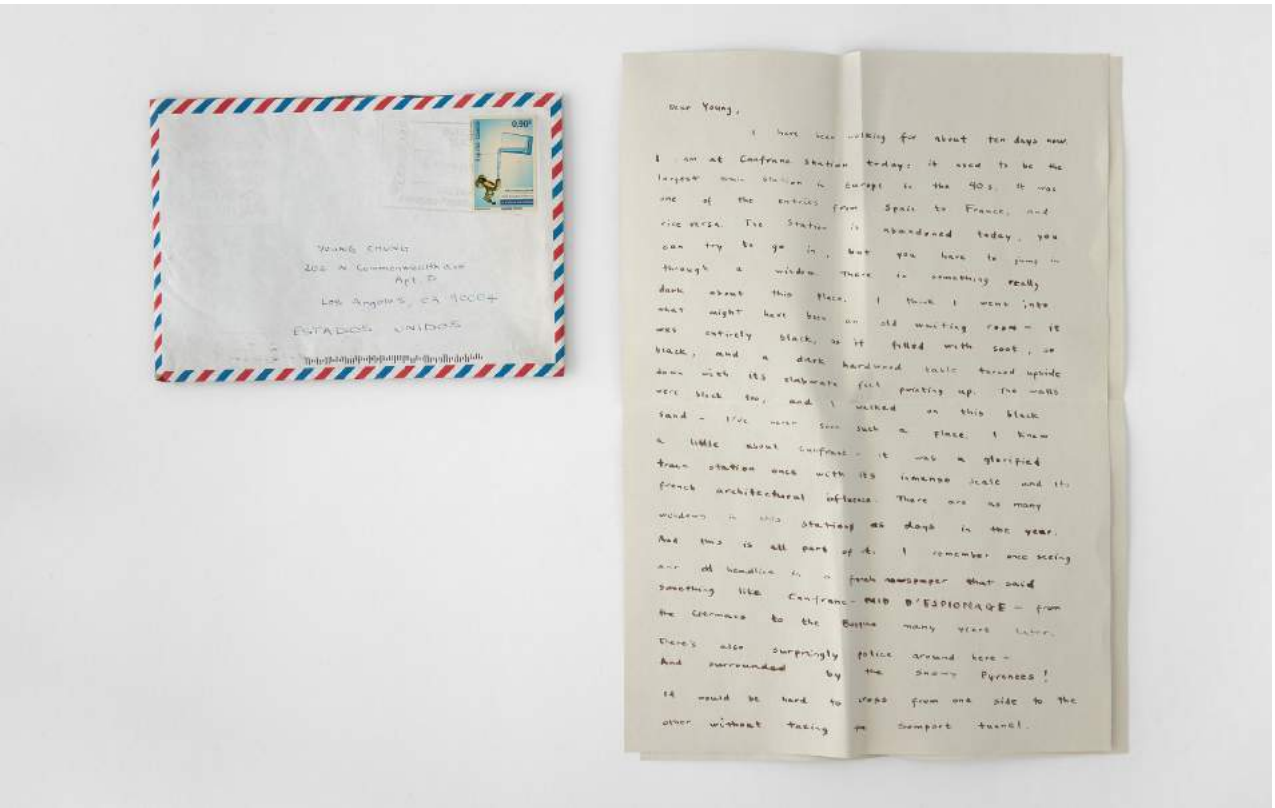 0,90€
YOUNG CHUNG
202 N Commonwealth ave
Apt D
Los Angeles, CA 90004
ESTADOS UNIDOS
Dear Young,
I have been walking for about ten days now.
I am at Canfranc Station today: it used to be the
largest train station in Europe in the 40s. It was
one of the entries from Spain to France, and
vice versa. The Station is abandoned today, you
can try to go in, but you have to jump in
through a window. There is something really
dark about this place. I think I went into
what might have been an old waiting room - it
was entirely black, as if filled with soot, so
black, and a dark hardwood table turned upside
down with its elaborate feet pointing up. The walls
were black too, and I walked on this black
sand - I've never seen such a place. I knew
a little about Canfranc - it was a glorified
train station once with its immense scale and its
french architectural influence. There are as many
windows in this stations as days in the year.
And this is all part of it. I remember once seeing
an old headline in a french newspaper that said
something like Canfranc - NID D'ESPIONAGE - from
the Germans to the Basque many years later.
There's also surpringly police around here -
And surrounded by the snowy Pyrenees!
It would be hard to cross from one side to the
other without taking the Somport tunnel.